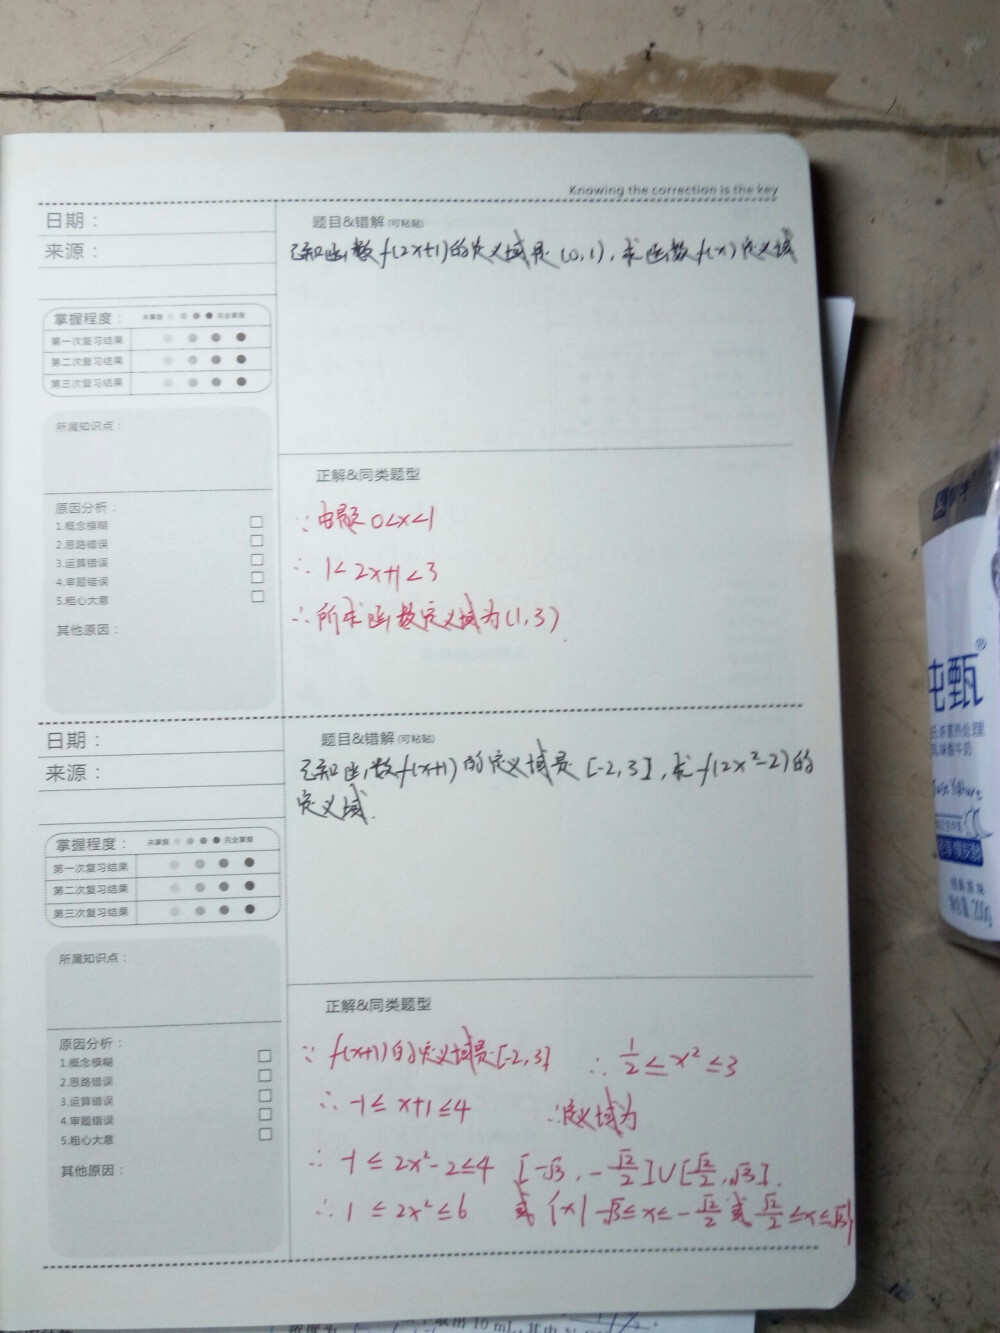 Knowing the correction is the key
日期：
来源：
题目&错解(可粘贴)
已知函数f(2x+1)的定义域是(0,1),求函数f(x)定义域
掌握程度： 未掌握 完全掌握
第一次复习结果
第二次复习结果
第三次复习结果
所属知识点：
原因分析：
1.概念模糊
2.思路错误
3.运算错误
4.审题错误
5.粗心大意
其他原因：
正解&同类题型
∵由题 0<x<1
∴ 1<2x+1<3
∴所求函数定义域为(1,3)
日期：
来源：
题目&错解(可粘贴)
已知函数f(x+1)的定义域是[-2,3],求f(2x²-2)的
定义域.
掌握程度： 未掌握 完全掌握
第一次复习结果
第二次复习结果
第三次复习结果
所属知识点：
原因分析：
1.概念模糊
2.思路错误
3.运算错误
4.审题错误
5.粗心大意
其他原因：
正解&同类题型
∵ f(x+1)的定义域是[-2,3]
∴ -1≤x+1≤4
∴ -1≤2x²-2≤4
∴ 1≤2x²≤6
∴ 1/2≤x²≤3
∴定义域为
[-√3,-√2/2]∪[√2/2,√3].
或{x|-√3≤x≤-√2/2或√2/2≤x≤√3}
甄
®
200g
取出10 mL,其中